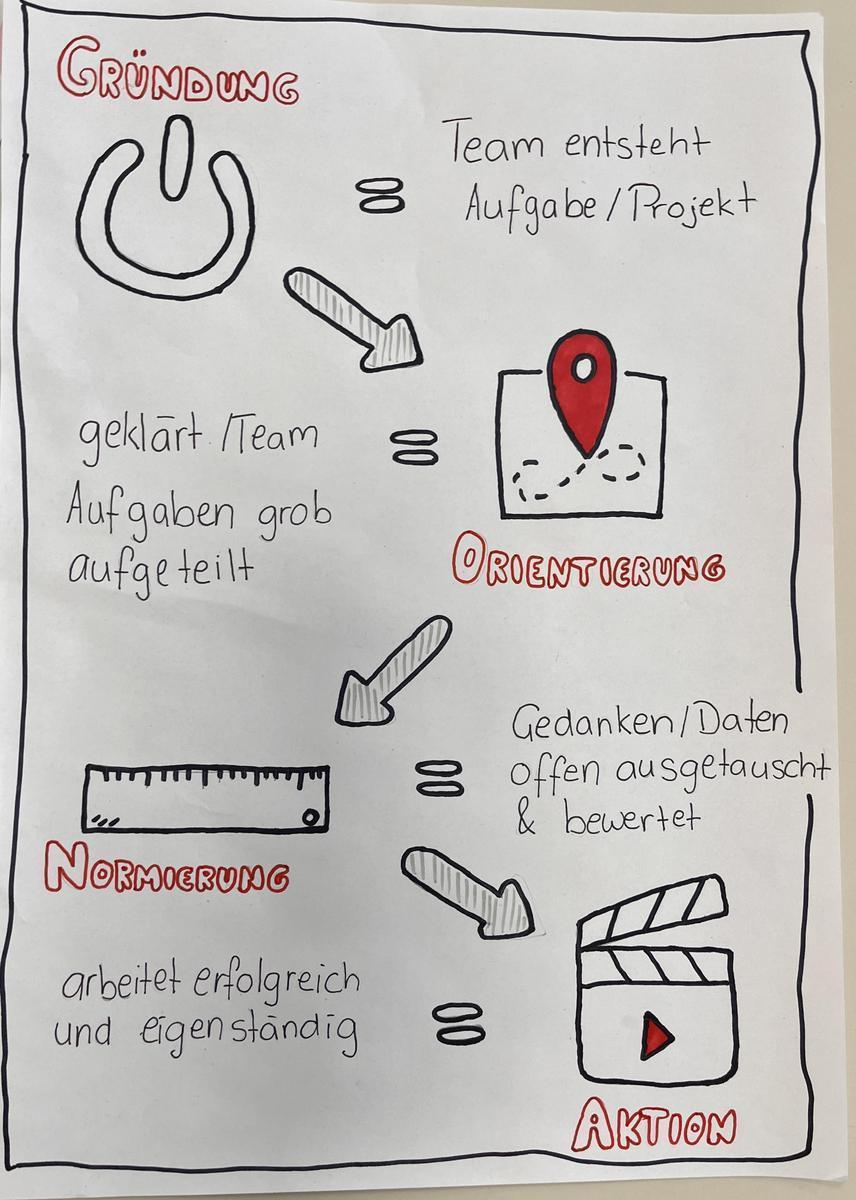 GRÜNDUNG
=
Team entsteht
Aufgabe/Projekt
geklärt/Team
Aufgaben grob
aufgeteilt
=
ORIENTIERUNG
=
Gedanken/Daten
offen ausgetauscht
& bewertet
NORMIERUNG
arbeitet erfolgreich
und eigenständig
=
AKTION